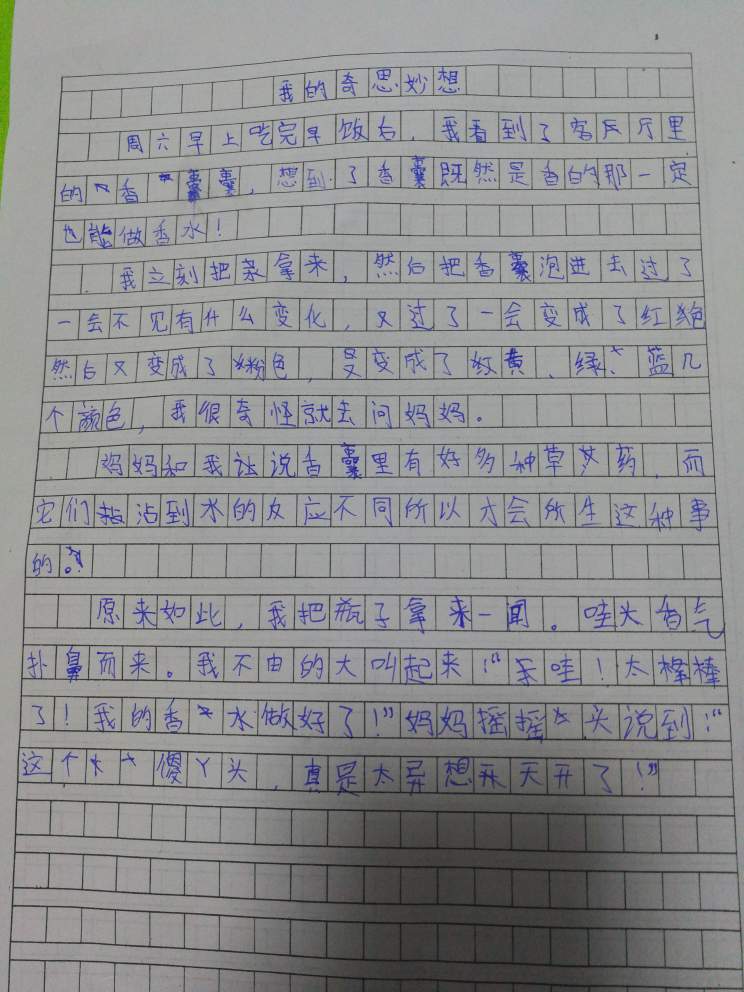 我的奇思妙想
周六早上吃完早饭后，我看到了客厅里
的香囊，想到了香囊既然是香的那一定
也能做香水！
我立刻把菜拿来，然后把香囊泡进去过了
一会不见有什么变化，又过了一会变成了红色
然后又变成了粉色，又变成了黄、绿、蓝几
个颜色，我很奇怪就去问妈妈。
妈妈和我说香囊里有好多种草药，而
它们沾到水的反应不同所以才会所生这种事
的。
原来如此，我把瓶子拿来一闻。哇大香气
扑鼻而来。我不由的大叫起来！“哇！太棒
了！我的香水做好了！”妈妈摇摇头说到！“
这个傻丫头，真是太异想天开了！”